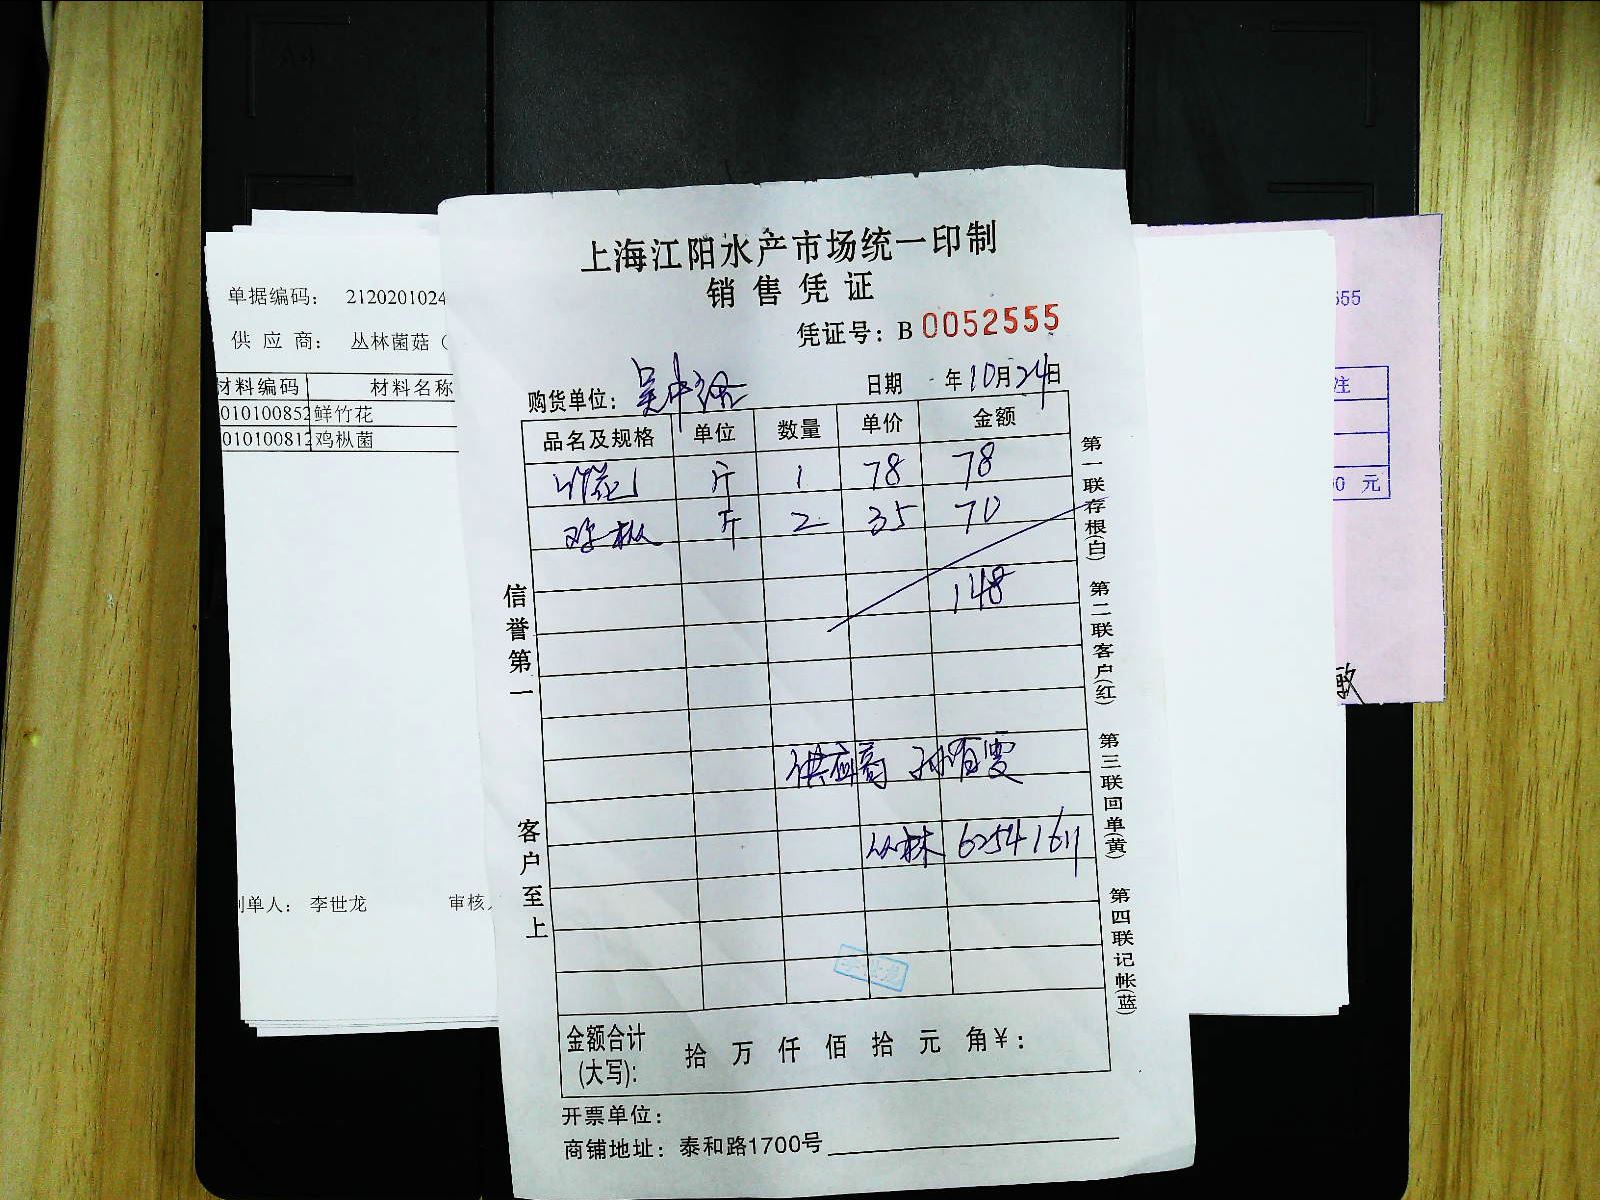 上海江阳水产市场统一印制
销售凭证
凭证号：B 0052555
单据编码： 2120201024
供应商： 丛林菌菇（
材料编码 材料名称
010100852 鲜竹花
010100812 鸡枞菌
制单人： 李世龙 审核
购货单位： 日期 年10月24日
品名及规格 单位 数量 单价 金额
竹花 斤 1 78 78
鸡枞 斤 2 35 70
148
供应商 孙有雯
丛林 62541611
信誉第一
客户至上
第一联存根(白)
第二联客户(红)
第三联回单(黄)
第四联记帐(蓝)
金额合计(大写)： 拾 万 仟 佰 拾 元 角 ¥：
开票单位：
商铺地址：泰和路1700号
555
注
0 元
敏